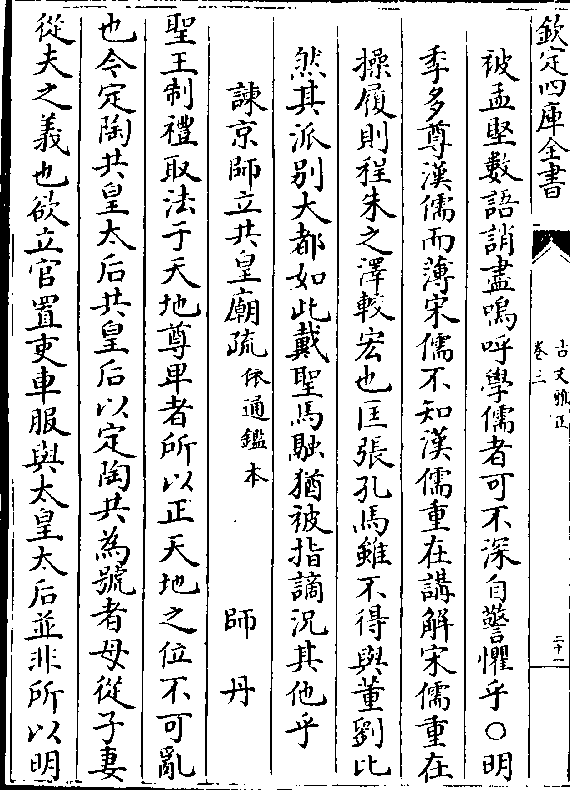 欽定四庫全書
古文雅正
卷三
二十一
被孟堅數語誚盡嗚呼學儒者可不深自警懼乎○明
季多尊漢儒而薄宋儒不知漢儒重在講解宋儒重在
操履則程朱之澤較宏也匡張孔馬雖不得與董劉比
然其派别大都如此戴聖馬融猶被指謫況其他乎
諫京師立共皇廟疏依通鑑本　師丹
聖王制禮取法于天地尊卑者所以正天地之位不可亂
也今定陶共皇太后共皇后以定陶共為號者母從子妻
從夫之義也欲立官置吏車服與太皇太后並非所以明